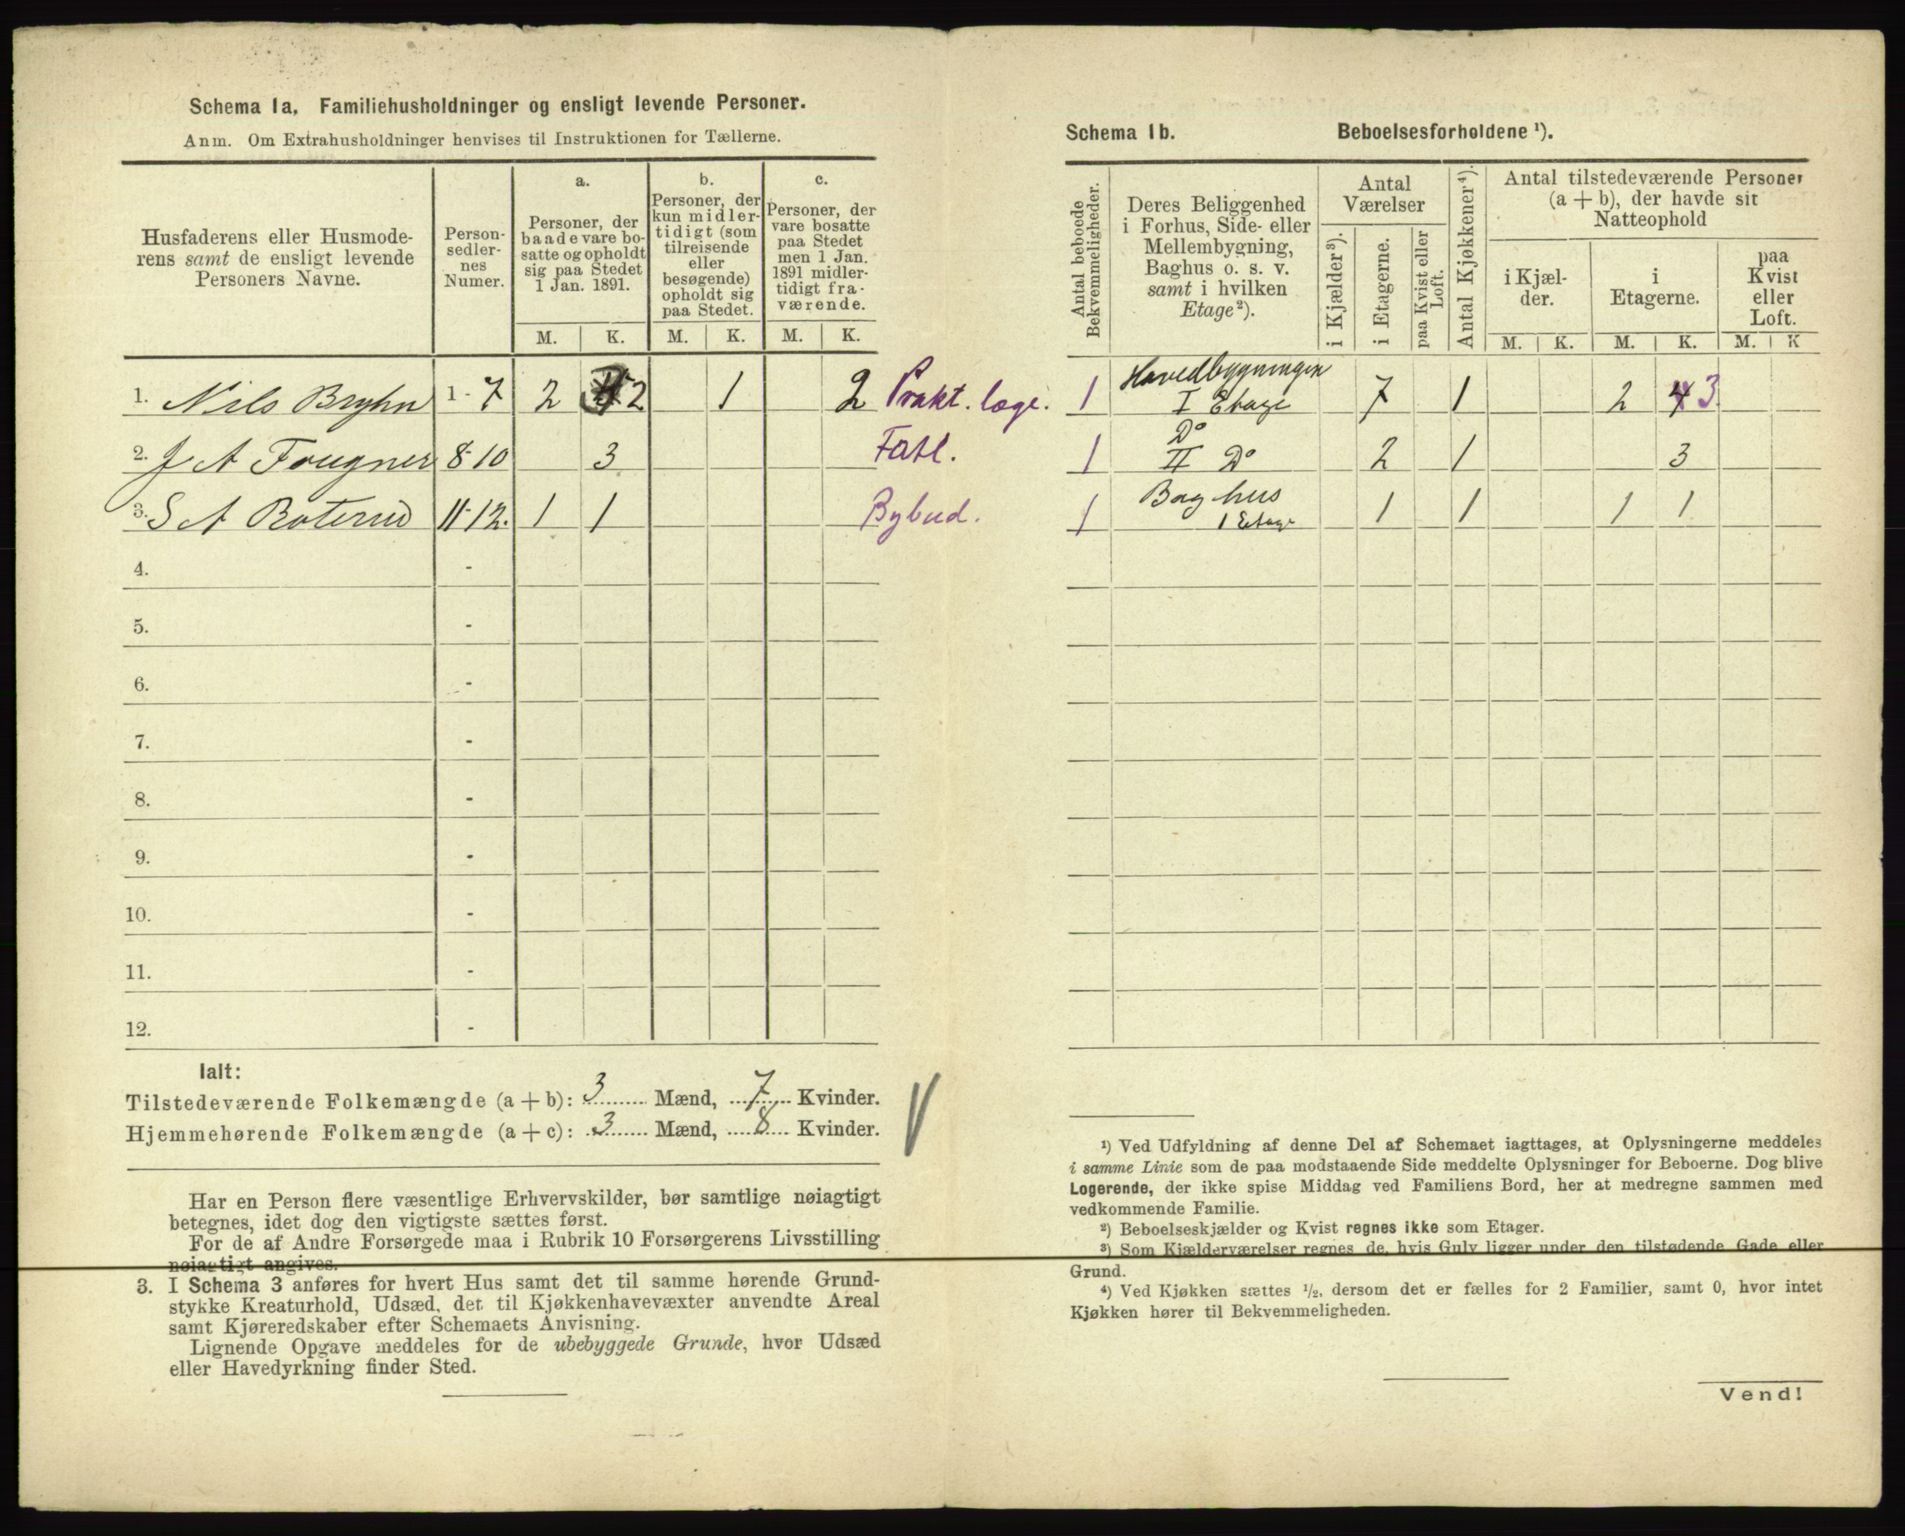 Schema 1a. Familiehusholdninger og ensligt levende Personer.
Anm. Om Extrahusholdninger henvises til Instruktionen for Tællerne.
Husfaderens eller Husmode-
rens samt de ensligt levende
Personers Navne.
Person-
sedler-
nes
Numer.
a.
Personer, der
baade vare bo-
satte og opholdt
sig paa Stedet
1 Jan. 1891.
b.
Personer, der
kun midler-
tidigt (som
tilreisende
eller
besøgende)
opholdt sig
paa Stedet.
c.
Personer, der
vare bosatte
paa Stedet
men 1 Jan.
1891 midler-
tidigt fra-
værende.
M. K. M. K. M. K.
1. Nils Bryhn 1-7 2 2 1 2 Prakt. læge.
2. J A Fougner 8-10 3 Fatl.
3. S A Roterud 11-12. 1 1 Bybud.
4. -
5. -
6. -
7. -
8. -
9. -
10. -
11. -
12. -
Ialt:
Tilstedeværende Folkemængde (a + b): 3 Mænd, 7 Kvinder.
Hjemmehørende Folkemængde (a + c): 3 Mænd, 8 Kvinder.
Har en Person flere væsentlige Erhvervskilder, bør samtlige nøiagtigt
betegnes, idet dog den vigtigste sættes først.
For de af Andre Forsørgede maa i Rubrik 10 Forsørgerens Livsstilling
nøiagtigt angives.
3. I Schema 3 anføres for hvert Hus samt det til samme hørende Grund-
stykke Kreaturhold, Udsæd, det til Kjøkkenhavevæxter anvendte Areal
samt Kjøreredskaber efter Schemaets Anvisning.
Lignende Opgave meddeles for de ubebyggede Grunde, hvor Udsæd
eller Havedyrkning finder Sted.
Schema 1b. Beboelsesforholdene ¹).
Antal beboede
Bekvemmeligheder.
Deres Beliggenhed
i Forhus, Side- eller
Mellembygning,
Baghus o. s. v.
samt i hvilken
Etage²).
Antal
Værelser
i Kjælder³).
i Etagerne.
paa Kvist eller
Loft.
Antal Kjøkkener⁴).
Antal tilstedeværende Personer
(a + b), der havde sit
Natteophold
i Kjæl-
der.
i
Etagerne.
paa
Kvist
eller
Loft.
M. K. M. K. M. K
1 Hovedbygningen
I Etage 7 1 2 4 3
1 Do
II Do 2 1 3
1 Baghus
1 Etage 1 1 1 1
¹) Ved Udfyldning af denne Del af Schemaet iagttages, at Oplysningerne meddeles
i samme Linie som de paa modstaaende Side meddelte Oplysninger for Beboerne. Dog blive
Logerende, der ikke spise Middag ved Familiens Bord, her at medregne sammen med
vedkommende Familie.
²) Beboelseskjælder og Kvist regnes ikke som Etager.
³) Som Kjælderværelser regnes de, hvis Gulv ligger under den tilstødende Gade eller
Grund.
⁴) Ved Kjøkken sættes ½, dersom det er fælles for 2 Familier, samt 0, hvor intet
Kjøkken hører til Bekvemmeligheden.
Vend!